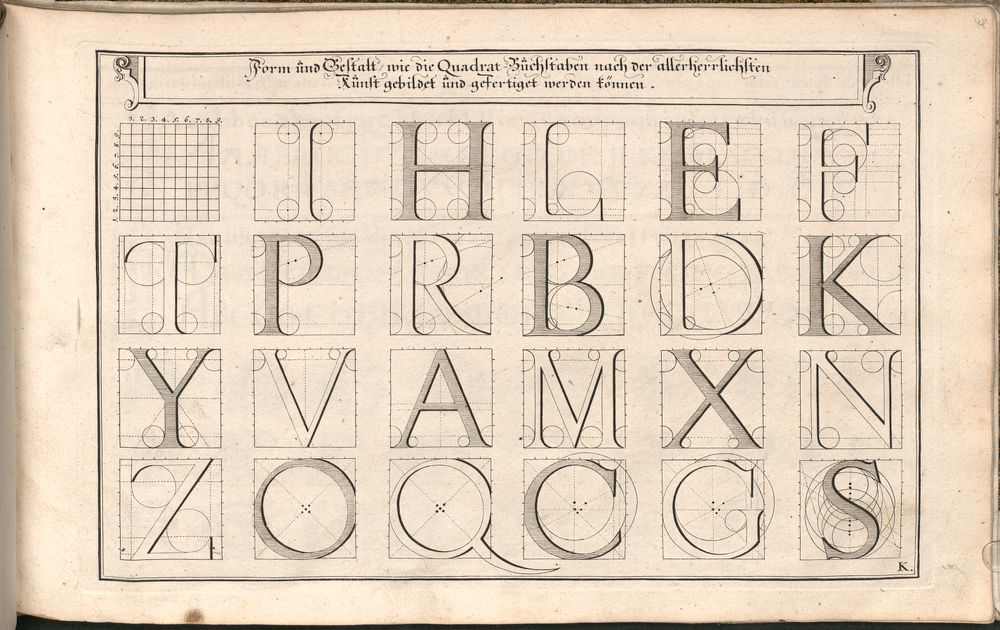 Form ŭnd Gestalt, wie die Quadrat-Bŭchstaben nach der allerherrlichsten
Kŭnst gebildet ŭnd gefertiget werden können.
1. 2. 3. 4. 5. 6. 7. 8. 9.
1. 2. 3. 4. 5. 6. 7. 8. 9.
I H L E F
T P R B D K
Y V A M X N
Z O Q C G S
K.